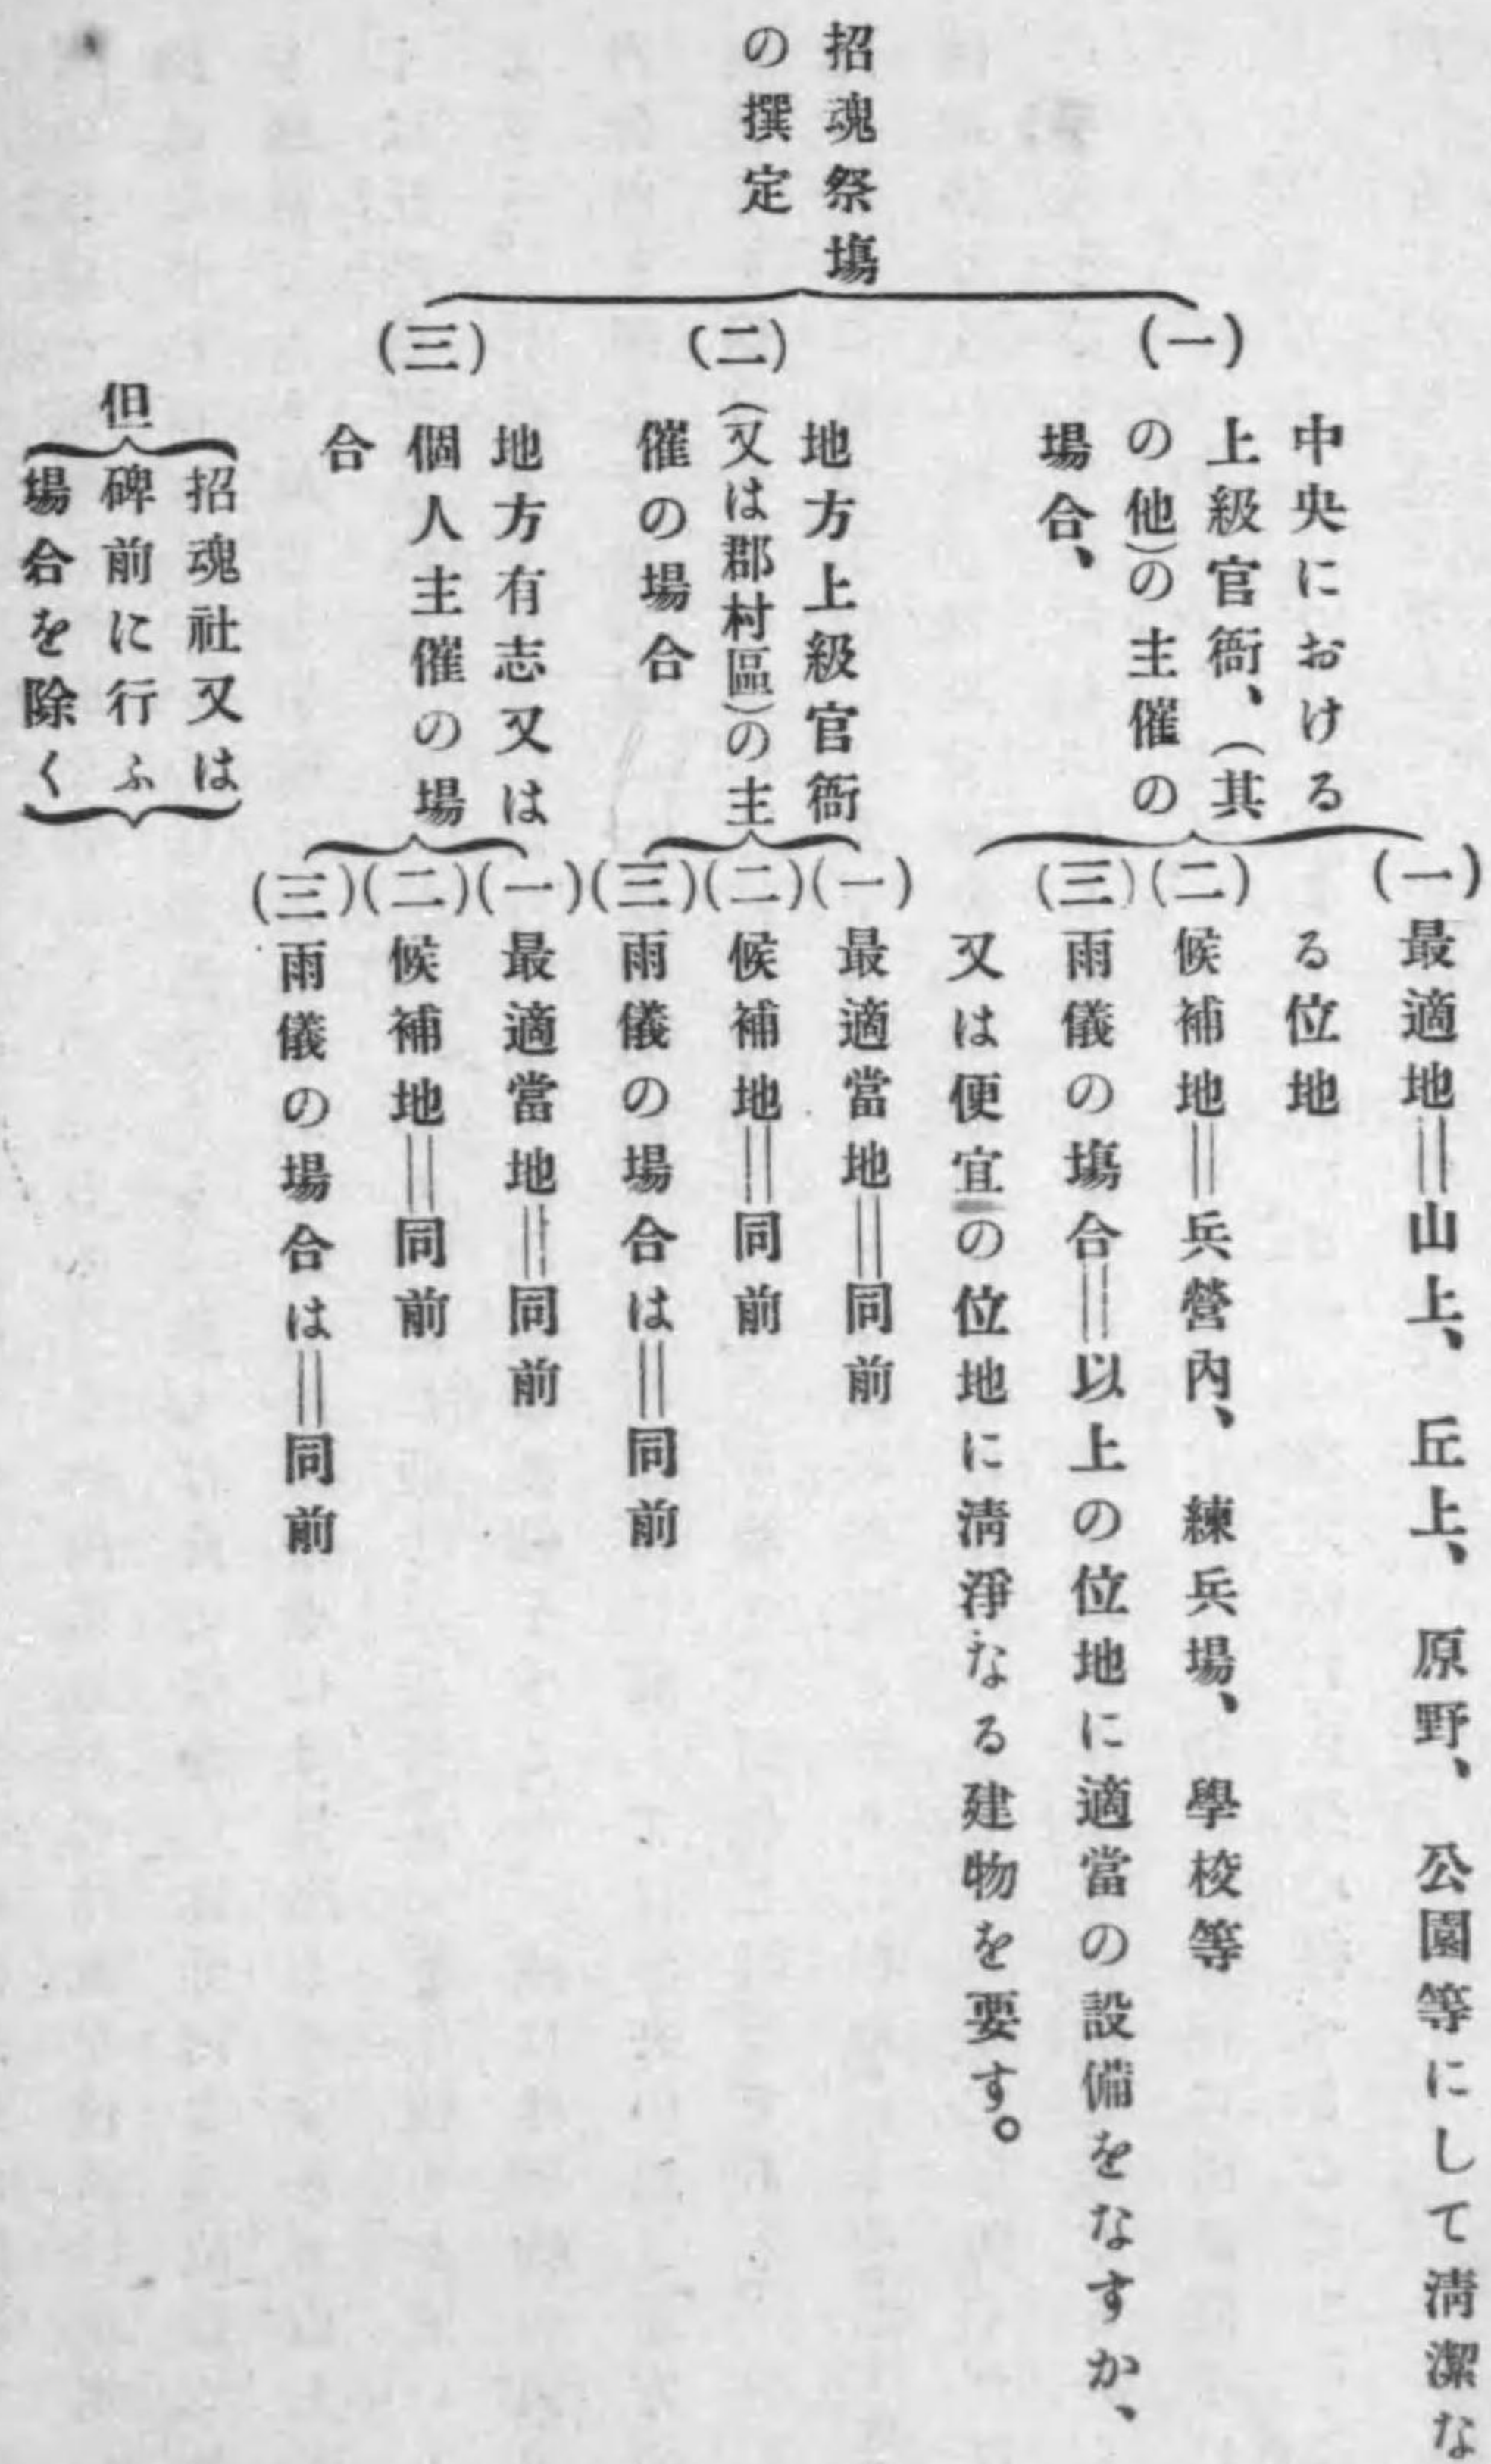 招魂祭塲
の撰定
(一)
中央における
上級官衙、(其
の他)の主催の
場合、
(一)最適地＝山上、丘上、原野、公園等にして淸潔な
る位地
(二)候補地＝兵營內、練兵場、學校等
(三)雨儀の塲合＝以上の位地に適當の設備をなすか、
又は便宜の位地に淸淨なる建物を要す。
(二)
地方上級官衙
(又は郡村區)の主
催の場合
(一)最適當地＝同前
(二)候補地＝同前
(三)雨儀の場合は＝同前
(三)
地方有志又は
個人主催の場
合
(一)最適當地＝同前
(二)候補地＝同前
(三)雨儀の場合は＝同前
但
招魂社又は
碑前に行ふ
場合を除く